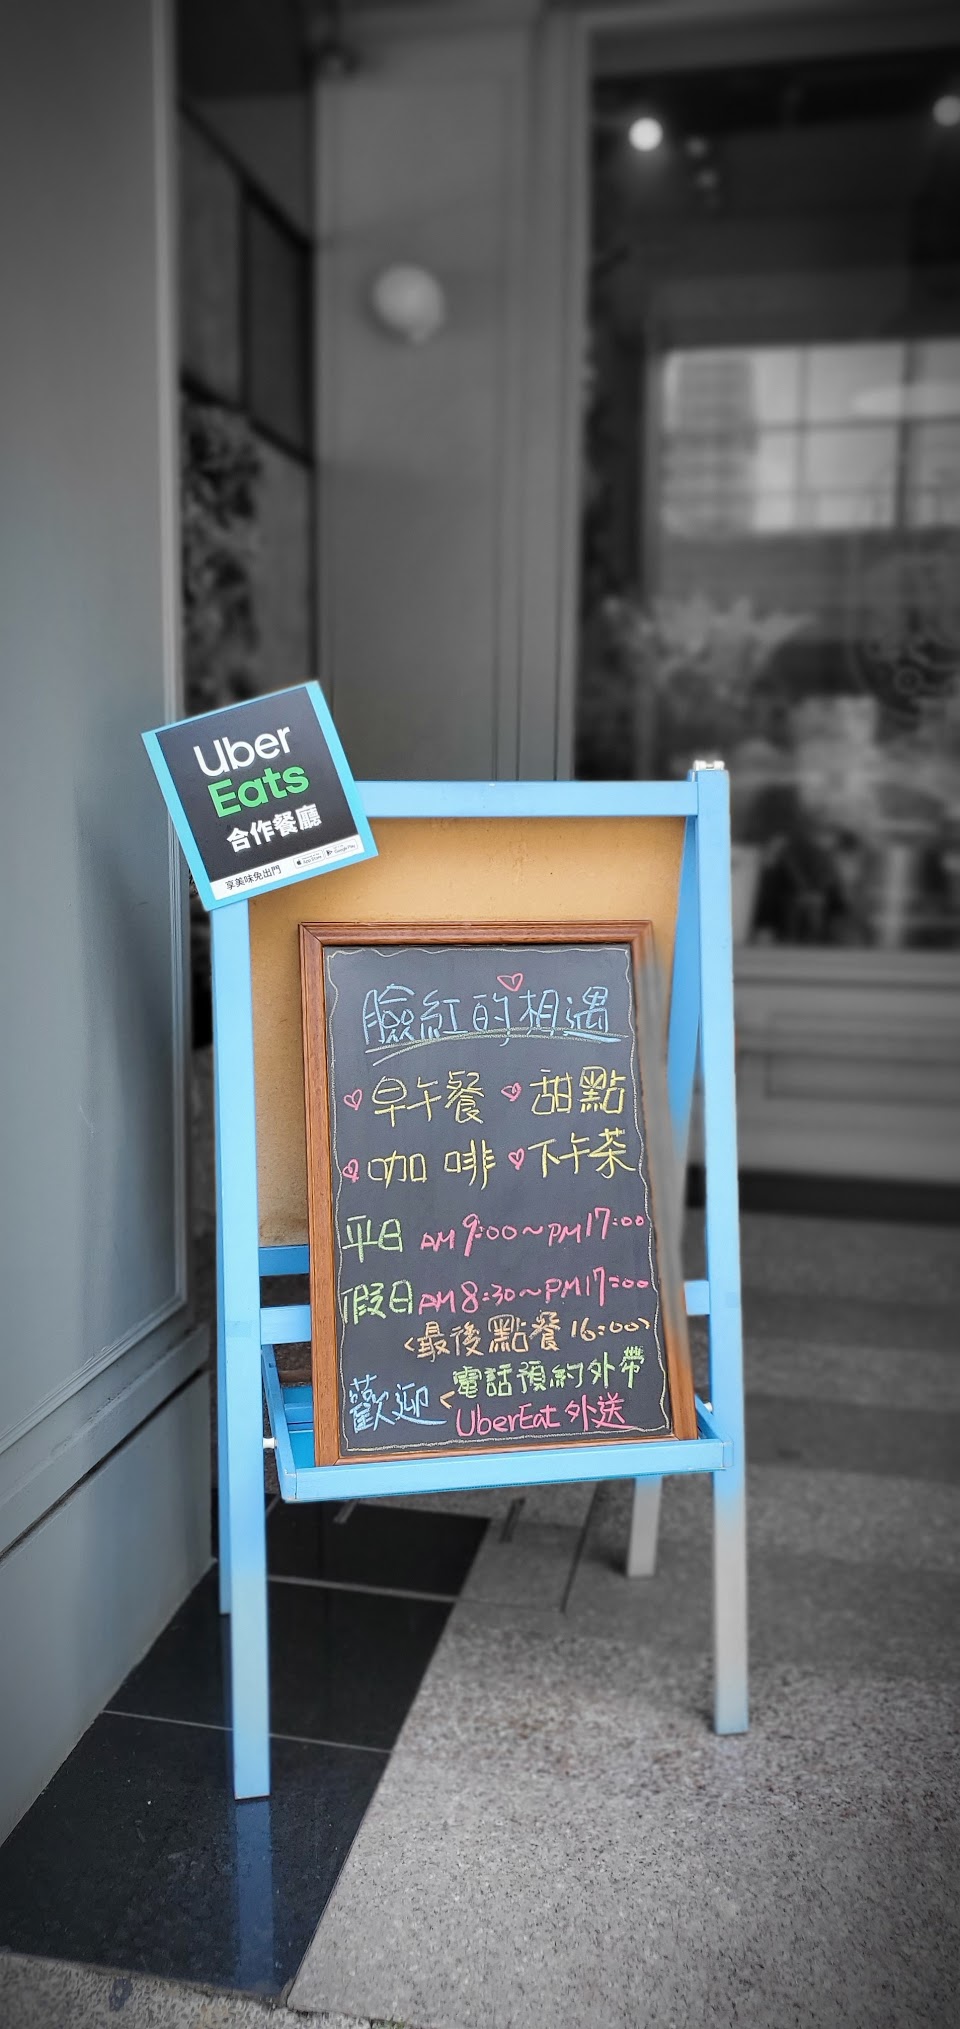 Uber
Eats
合作餐廳
享美味免出門
App Store
Google Play
臉紅的相遇
早午餐 甜點
咖啡 下午茶
平日 AM 9:00~PM17:00
假日 AM 8:30~PM17:00
<最後點餐 16:00>
歡迎 < 電話預約外帶
UberEat 外送